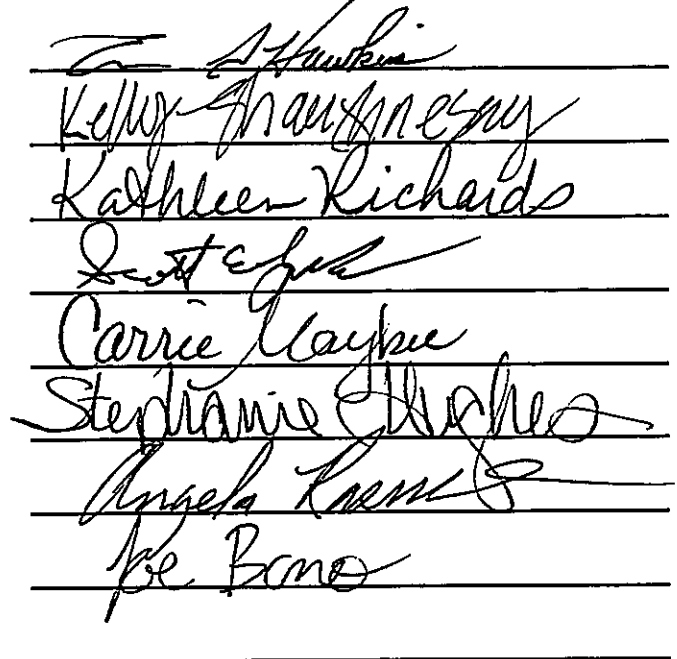 Hawkins
Kelly Shaughnessy
Kathleen Richards
Scott E
Carrie Maybee
Stephanie Hughes
Angela
Joe Bono